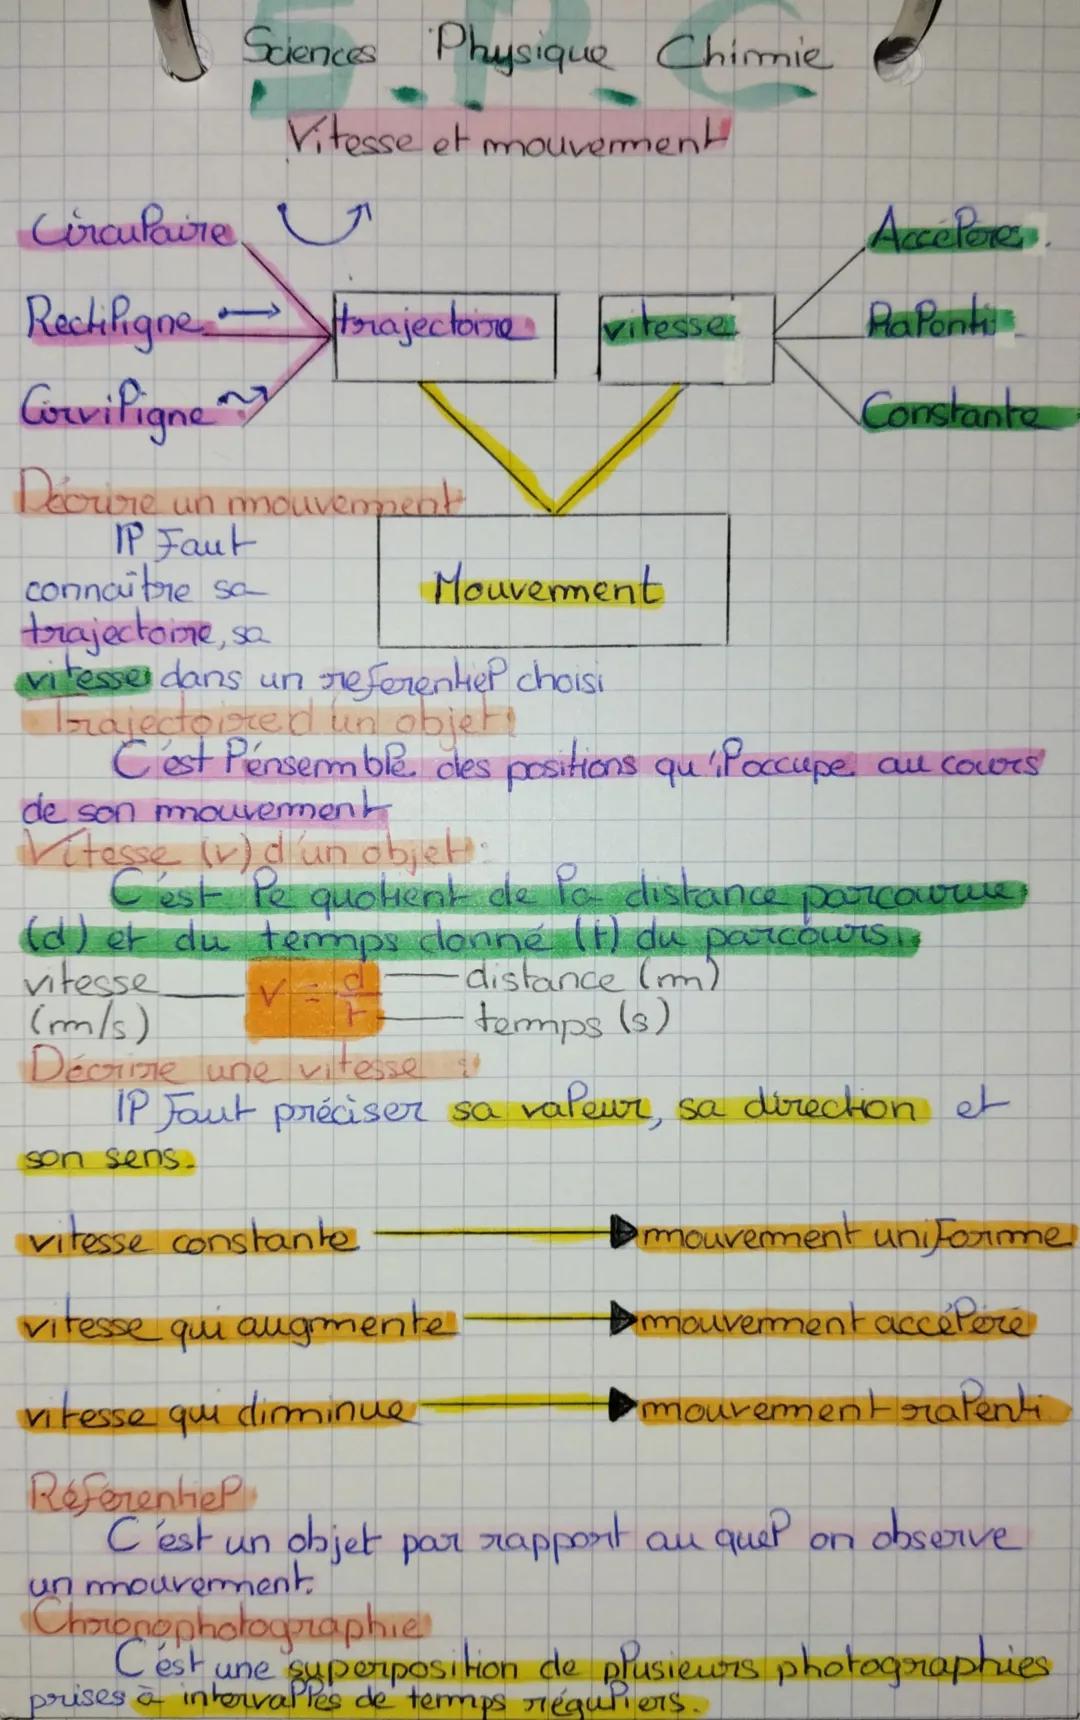 S.P.C
Sciences Physique Chimie
Vitesse et mouvement
Circulaire
Rectiligne
Curviligne
trajectoire
vitesse
Accélérée
Ralenti
Constante
Décrire un mouvement
Il Faut
connaître sa
trajectoire, sa
vitesse dans un referentiel choisi
Mouvement
Trajectoire d'un objet :
C'est l'ensemble des positions qu'il occupe au cours
de son mouvement
Vitesse (v) d'un objet :
C'est le quotient de la distance parcourue
(d) et du temps donné (t) du parcours.
vitesse
(m/s)
V = d/t
distance (m)
temps (s)
Décrire une vitesse :
Il Faut préciser sa valeur, sa direction et
son sens.
vitesse constante → mouvement uniforme
vitesse qui augmente → mouvement accéléré
vitesse qui diminue → mouvement ralenti
Référentiel
C'est un objet par rapport au quel on observe
un mouvement.
Chronophotographie
C'est une superposition de plusieurs photographies
prises à intervalles de temps réguliers.